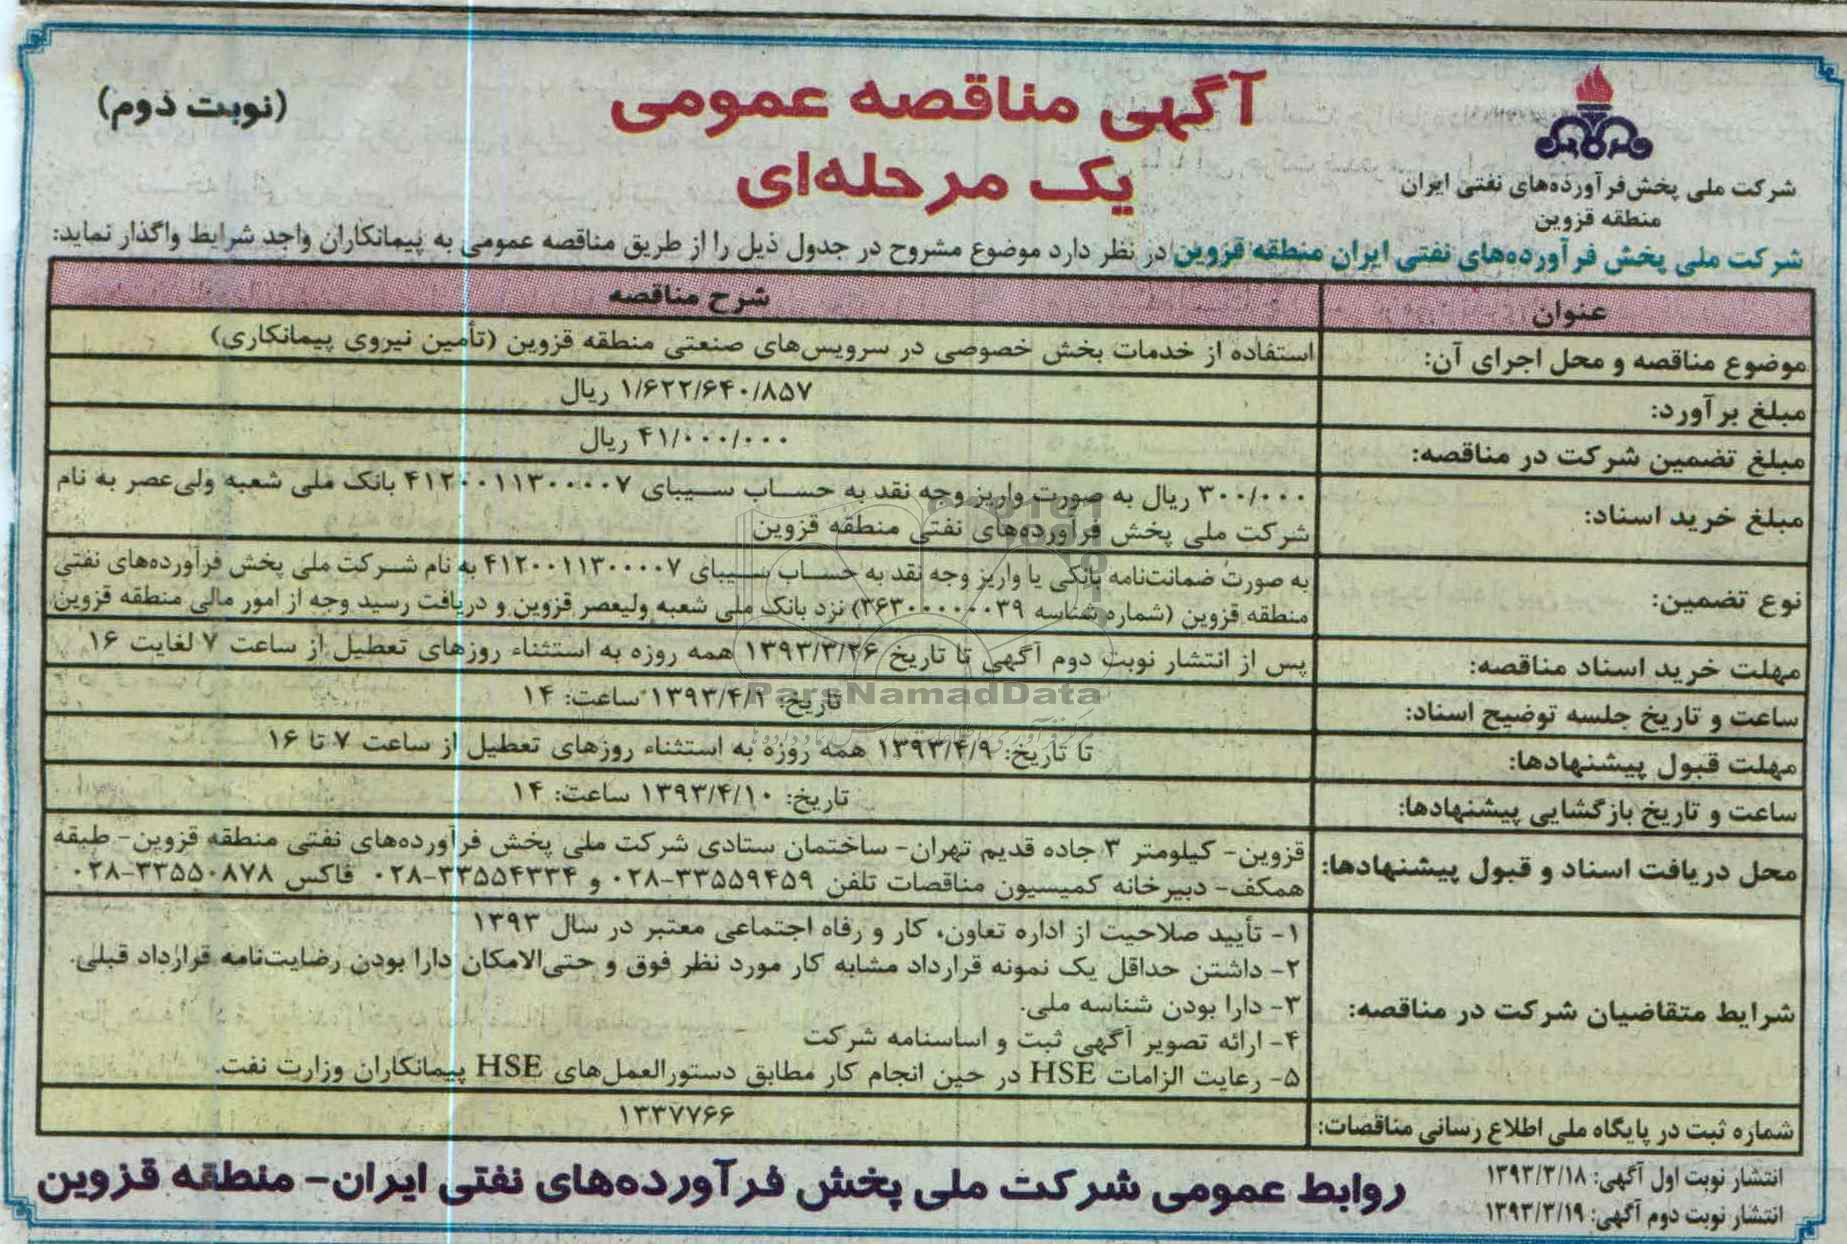 آگهی مناقصه عمومی
یک مرحله‌ای
(نوبت دوم)
شرکت ملی پخش فرآورده‌های نفتی ایران
منطقه قزوین
شرکت ملی پخش فرآورده‌های نفتی ایران منطقه قزوین در نظر دارد موضوع مشروح در جدول ذیل را از طریق مناقصه عمومی به پیمانکاران واجد شرایط واگذار نماید:
عنوان شرح مناقصه
موضوع مناقصه و محل اجرای آن: استفاده از خدمات بخش خصوصی در سرویس‌های صنعتی منطقه قزوین (تأمین نیروی پیمانکاری)
مبلغ برآورد: ۱/۶۲۲/۶۴۰/۸۵۷ ریال
مبلغ تضمین شرکت در مناقصه: ۴۱/۰۰۰/۰۰۰ ریال
مبلغ خرید اسناد: ۳۰۰/۰۰۰ ریال به صورت واریز وجه نقد به حساب سیبای ۴۱۲۰۰۱۱۳۰۰۰۰۷ بانک ملی شعبه ولی‌عصر به نام
شرکت ملی پخش فرآورده‌های نفتی منطقه قزوین
نوع تضمین: به صورت ضمانت‌نامه بانکی یا واریز وجه نقد به حساب سیبای ۴۱۲۰۰۱۱۳۰۰۰۰۷ به نام شرکت ملی پخش فرآورده‌های نفتی
منطقه قزوین (شماره شناسه ۳۶۳۰۰۰۰۰۰۳۹) نزد بانک ملی شعبه ولیعصر قزوین و دریافت رسید وجه از امور مالی منطقه قزوین
مهلت خرید اسناد مناقصه: پس از انتشار نوبت دوم آگهی تا تاریخ ۱۳۹۳/۳/۲۶ همه روزه به استثناء روزهای تعطیل از ساعت ۷ لغایت ۱۶
ساعت و تاریخ جلسه توضیح اسناد: تاریخ: ۱۳۹۳/۴/۲ ساعت: ۱۴
مهلت قبول پیشنهادها: تا تاریخ: ۱۳۹۳/۴/۹ همه روزه به استثناء روزهای تعطیل از ساعت ۷ تا ۱۶
ساعت و تاریخ بازگشایی پیشنهادها: تاریخ: ۱۳۹۳/۴/۱۰ ساعت: ۱۴
محل دریافت اسناد و قبول پیشنهادها: قزوین- کیلومتر ۳ جاده قدیم تهران- ساختمان ستادی شرکت ملی پخش فرآورده‌های نفتی منطقه قزوین- طبقه
همکف- دبیرخانه کمیسیون مناقصات تلفن ۳۳۵۵۹۴۵۹-۰۲۸ و ۳۳۵۵۴۳۳۴-۰۲۸ فاکس ۳۳۵۵۰۸۷۸-۰۲۸
شرایط متقاضیان شرکت در مناقصه: ۱- تأیید صلاحیت از اداره تعاون، کار و رفاه اجتماعی معتبر در سال ۱۳۹۳
۲- داشتن حداقل یک نمونه قرارداد مشابه کار مورد نظر فوق و حتی‌الامکان دارا بودن رضایت‌نامه قرارداد قبلی.
۳- دارا بودن شناسه ملی.
۴- ارائه تصویر آگهی ثبت و اساسنامه شرکت
۵- رعایت الزامات HSE در حین انجام کار مطابق دستورالعمل‌های HSE پیمانکاران وزارت نفت.
شماره ثبت در پایگاه ملی اطلاع رسانی مناقصات: ۱۳۳۷۷۶۶
ParsNamadData
انتشار نوبت اول آگهی: ۱۳۹۳/۳/۱۸
انتشار نوبت دوم آگهی: ۱۳۹۳/۳/۱۹
روابط عمومی شرکت ملی پخش فرآورده‌های نفتی ایران- منطقه قزوین